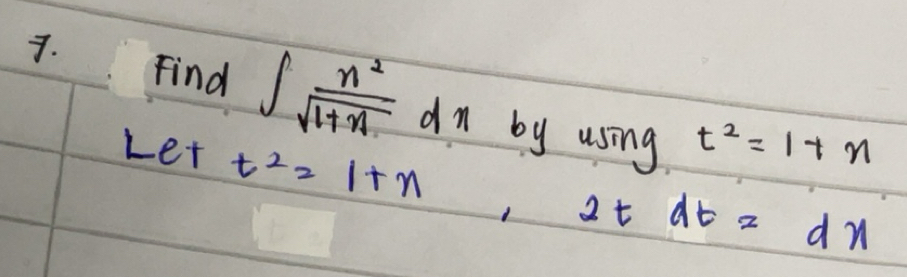 7. Find ∫ x²/√(1+x) dx by using t² = 1 + x
Let t² = 1+x , 2t dt = dx